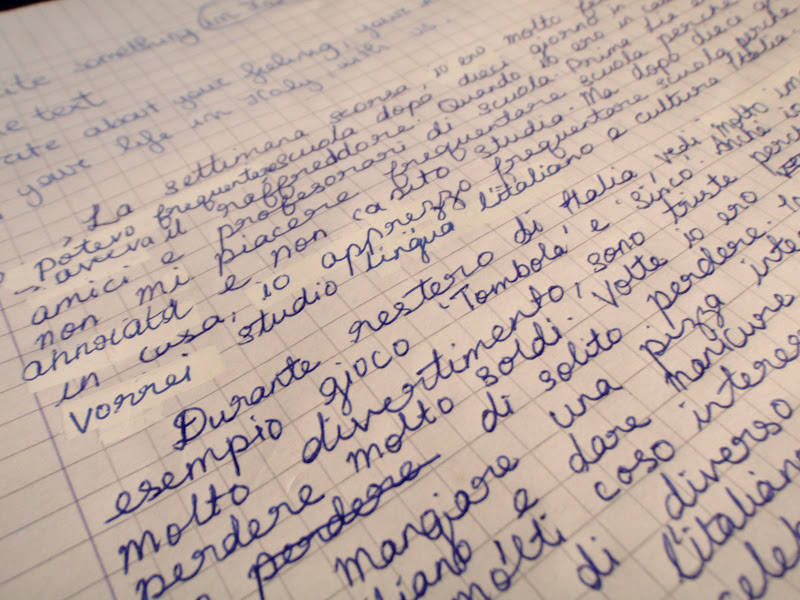 ite something in
e text
ate about your feeling, your
your life in Italy, with us.
La settimana scorsa, io ero molto
potevo frequentare scuola dopo dieci giorno in
→ aveva il raffreddore. Quando io ero in
amici e profesorari di scuola. Prima
non mi piacere frequentare scuola perché
annoiata e non capito studio. Ma dopo dieci
in casa, io apprezzo frequentare scuola, perché
vorrei studio lingua l'italiano e cultura Italia.
Durante restero di Italia, vedi molto im
esempio gioco "Tombola" e "Sisco". Anche io
molto divertimento, sono triste per
perdere molto soldi. Volte io ero
perdere di solito perdere.
mangiare una pizza inte
liano e dare manicure
molti coso interes
di diverso
l'italian
celeb